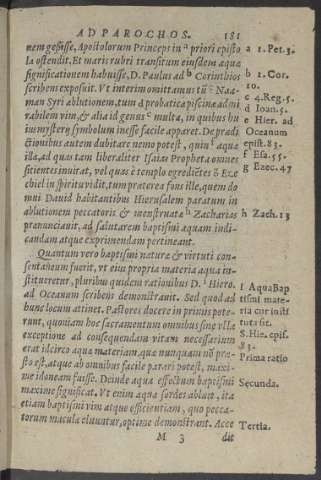 AD PAROCHOS. 181
nem gessisse, Apostolorum Princeps in a priori episto
la ostendit. Et maris rubri transitum eiusdem aquæ
significationem habuisse, D. Paulus ad b Corinthios
scribens exposuit. Vt interim omittamus tũ c Naa-
man Syri ablutionem, tum d probatica piscinæ admi
rabilem vim, & alia id genus e multa, in quibus hu
ius mysterij symbolum inesse facile apparet. De prædi
ctionibus autem dubitare nemo potest, quin f aquæ
illæ, ad quas tam liberaliter Isaias Propheta omnes
sitientes inuitat, vel quas è templo egrediẽtes g Eze
chiel in spiritu vidit, tum præterea fons ille, quem do
mui Dauid habitantibus Hierusalem paratum in
ablutionem peccatoris & menstruatæ h Zacharias
prænunciauit, ad salutarem baptismi aquam indi-
candam atque exprimendam pertineant.
Quantum vero baptismi naturæ & virtuti con-
sentaneum fuerit, vt eius propria materia aqua in-
stitueretur, pluribus quidem rationibus D. Hiero.
ad Oceanum scribens demonstrauit. Sed quod ad
hunc locum attinet. Pastores docere in primis pote-
runt, quoniam hoc sacramentum omnibus sine vlla
exceptione ad consequendam vitam necessarium
erat idcirco aquæ materiam, quæ nunquam nõ præ-
sto est, atque ab omnibus facile parari potest, maxi-
me idoneam fuisse. Deinde aqua effectum baptismi
maxime significat. Vt enim aqua sordes abluit, ita
etiam baptismi vim atque efficientiam, quo pecca-
torum macula eluuntur, optime demonstrant. Acce
M 3 dit
a 1. Pet. 3.
b 1. Cor.
10.
c 4. Reg. 5.
d Ioan. 5.
e Hier. ad
Oceanum
epist. 83.
f Esa. 55.
g Ezec. 47
h Zach. 13
Aqua Bap
tismi mate-
ria cur inst
tuta sit.
S. Hie. epis.
83.
Prima ratio
Secunda.
Tertia.